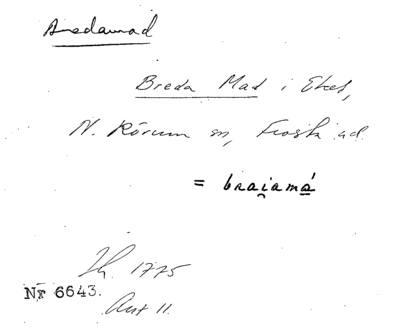 Bredamad
Breda Mad i Ekes,
N. Rörum sn, Frosta hd.
= braiamá
1775
Nr 6643.
Ant 11.